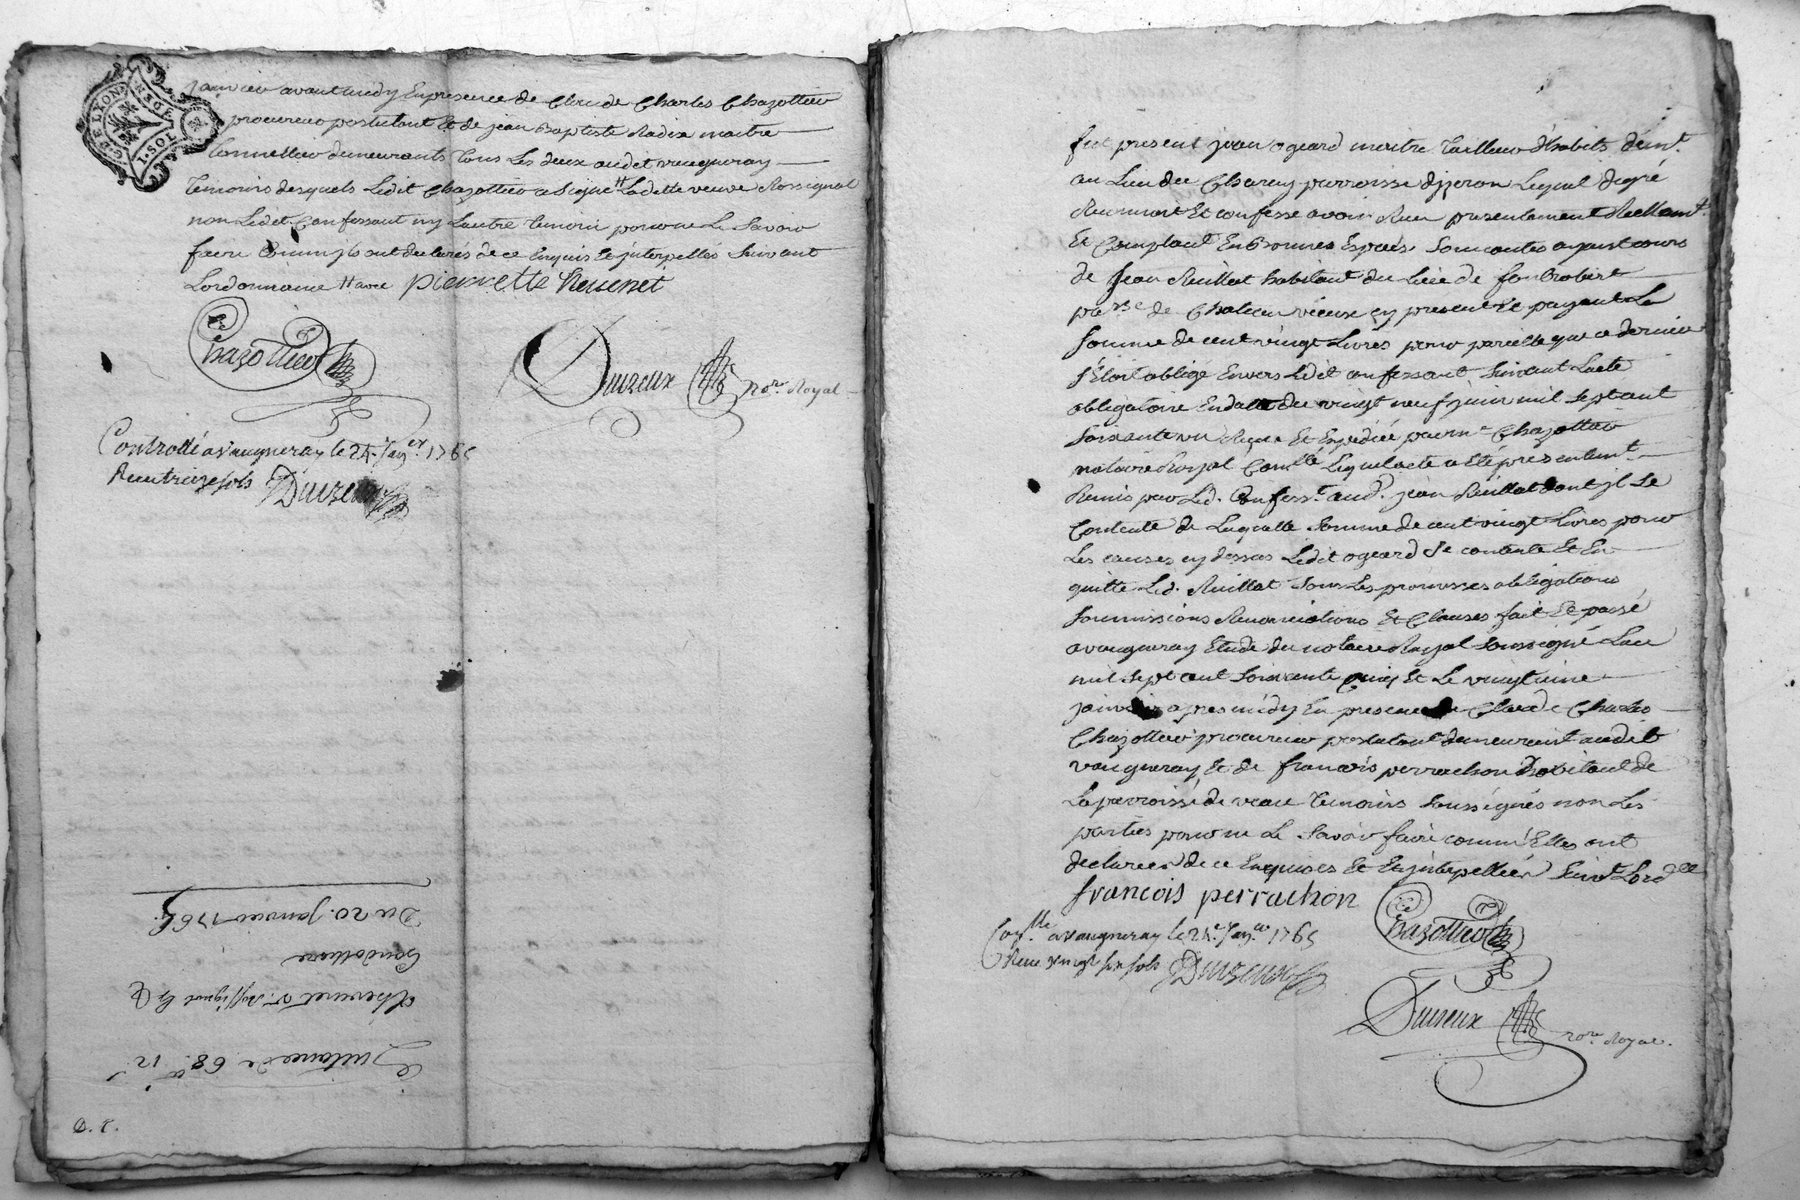 G. DE LYON
1. SOL
janvier avant midy En presence de Claude Charles Chazottier
procureur postulant Et de jean Baptiste Radix maitre
tonnellier demeurants Tous Les deux audit vaugneray
Temoins desquels Ledit Chazottier a Signé # Ladette veuve Rossignol
non Ledit Confessant ny Lautre Temoin pour ne Le Savoir
faire Comm'ils ont declarés de ce Enquis Et jnterpellés Suivant
Lordonnance # avec pierrette
Chazottier
Duizeux no.re Royal
Controllé a Vaugneray le 24.e Jan.er 1765
Recu treize sols Duizeux
Quittance de 68.# 12.s
v.e Rossignol
Du 20. janvier 1765
fut present jean ogeard maitre Tailleur d'habits dem.t
au Lieu du Charey parroisse d'jzeron Lequel degré
Reconnoit Et confesse avoir Receu presentement Reellem.t
Et Comptant En Bonnes Espéces Sonnantes ayant cours
de Jean Ruillat habitant du Lieu de fontrobert
par.sse de Chateauvieux cy present Et payant La
Somme de cent vingt Livres pour pareille que ce dernier
s'Etoit obligé Envers Ledit confessant Suivant Lacte
obligatoire En datte du vingt neuf juin mil sept cent
Soixante un Receu Et Expediée par m.e Chazottier
notaire Royal Lequel acte a Eté presentem.t
Remis par Led. Confess.t aud. jean Ruillat dont jl Se
Contente de Laquelle Somme de cent vingt Livres pour
Les causes cy dessus Ledit ogeard Se contente Et En
quitte Led. Ruillat Sous Les promesses obligations
Soumissions Renonciations Et Clauses fait Et passé
a vaugneray Etude du notaire Royal Soussigné Lan
mil sept cent Soixante cinq Et Le vingtieme
janvier apres midy En presence de Claude Charles
Chazottier procureur postulant demeurant audit
vaugneray Et de francois perrachon habitant de
La parroisse de Temoins Soussignés non Les
parties pour ne Le Savoir faire comm'Elles ont
declarées de ce Enquises Et Et jnterpellées Suiv.t Lord.ce
francois perrachon
Chazottier
Con.llé a Vaugneray le 24.e Jan.er 1765
Recu vingt six sols Duizeux
Duizeux no.re Royal.